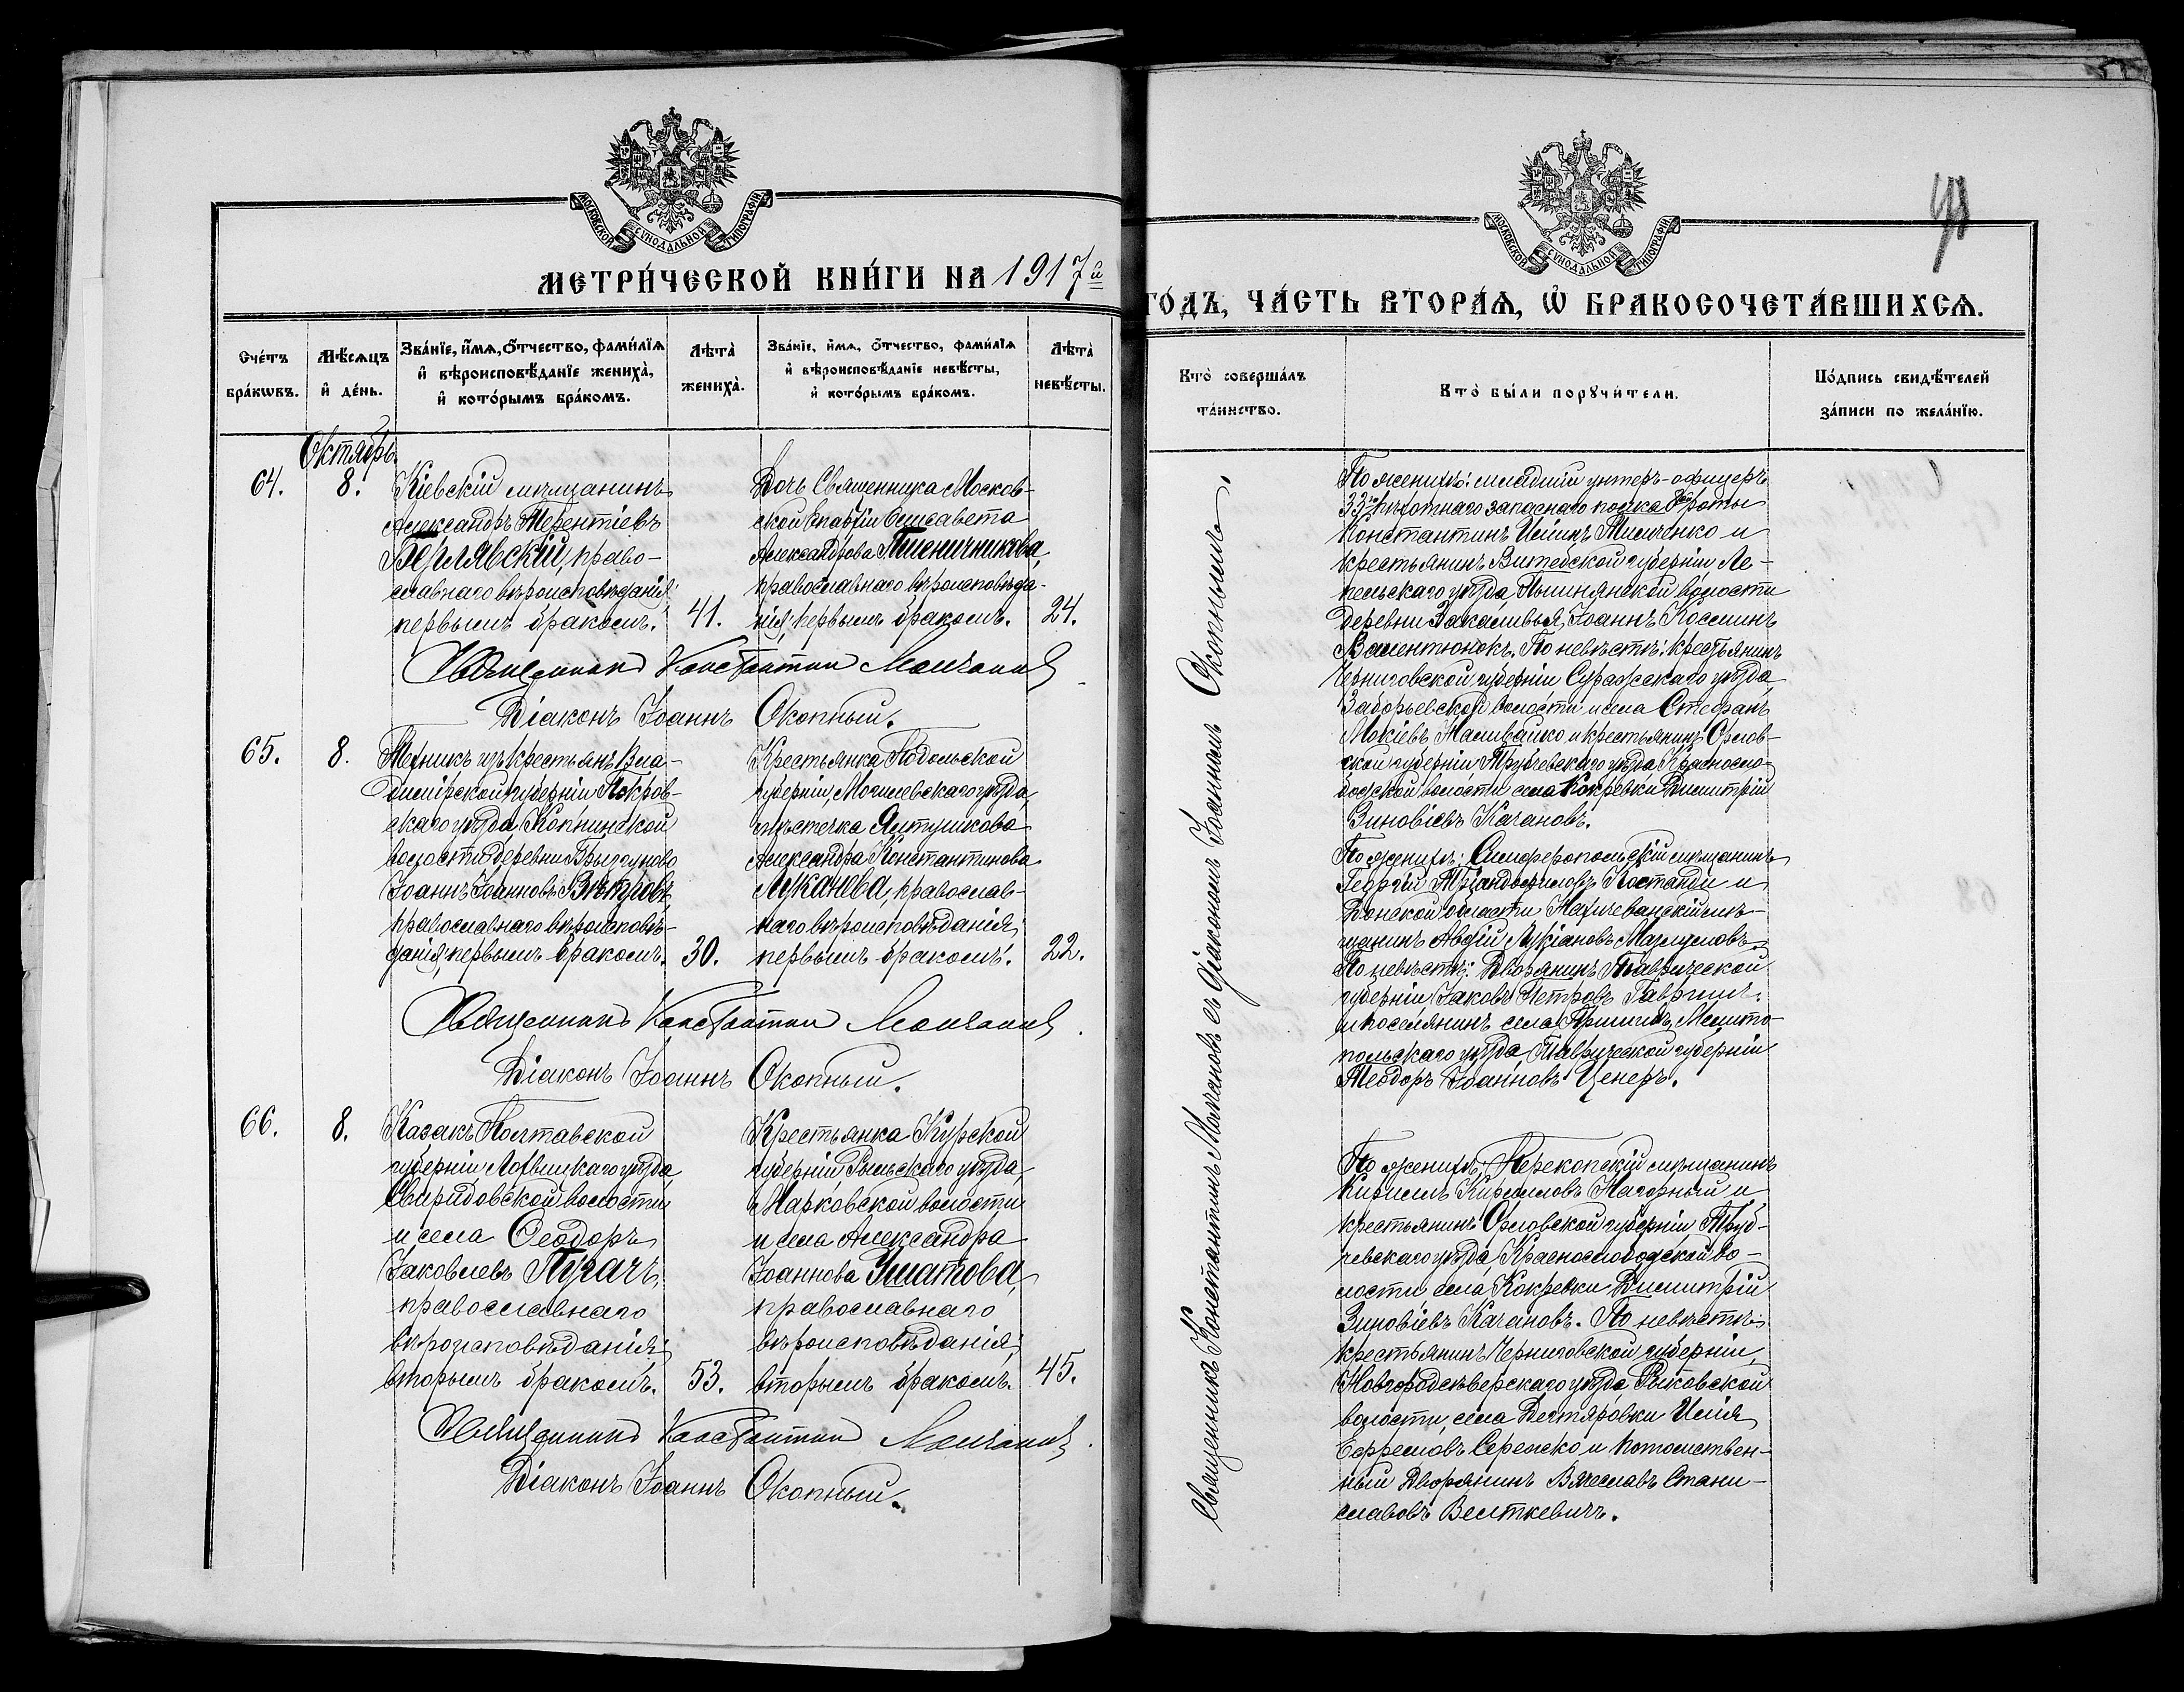 МОСКОВСКОЙ СУНОДАЛЬНОЙ ТИПОГРАФІИ
МЕТРИ́ЧЕСКОЙ КНИ́ГИ НА 1917й
Сче́тъ бра́кωвъ.
Мѣ́сяцъ и҆ де́нь.
Зва́нїе, и҆́мѧ, ѻ҆́тчество, фами́лїѧ и҆ вѣроисповѣ́данїе жениха̀, и҆ кото́рымъ бра́комъ.
Лѣта̀ жениха̀.
Зва́нїе, и҆́мѧ, ѻ҆́тчество, фами́лїѧ и҆ вѣроисповѣ́данїе невѣ́сты, и҆ кото́рымъ бра́комъ.
Лѣта̀ невѣ́сты.
Октябрь.
64.
8.
Кіевскій мѣщанинъ
Александръ Терентіевъ
православнаго вѣроисповѣданія
первымъ бракомъ.
41.
Дочь Священника Москов-
ской Епархіи Елисавета
Александрова Пшеничникова,
православнаго вѣроисповѣда-
нія, первымъ бракомъ.
24.
Священникъ Константинъ Молчановъ.
Діаконъ Іоаннъ Окопный.
65.
8.
Техникъ изъ крестьянъ Вла-
димірской губерніи Покров-
скаго уѣзда, Копнинской
волости деревни
Іоаннъ Іоанновъ Вѣтровъ,
православнаго вѣроисповѣ-
данія, первымъ бракомъ.
30.
Крестьянка Подольской
губерніи, Могилевскаго уѣзда,
мѣстечка Ялтушкова
Александра Константинова
Луканова, православ-
наго вѣроисповѣданія,
первымъ бракомъ.
22.
Священникъ Константинъ Молчановъ.
Діаконъ Іоаннъ Окопный.
66.
8.
Казакъ Полтавской
губерніи, Лохвицкаго уѣзда,
Свиридовской волости
и села Ѳеодоръ
Іаковлевъ Пугачъ,
православнаго
вѣроисповѣданія,
вторымъ бракомъ.
53.
Крестьянка Курской
губерніи, Рыльскаго уѣзда,
Марковской волости
и села Александра
Іоаннова Ушатова,
православнаго
вѣроисповѣданія,
вторымъ бракомъ.
45.
Священникъ Константинъ Молчановъ.
Діаконъ Іоаннъ Окопный.
МОСКОВСКОЙ СУНОДАЛЬНОЙ ТИПОГРАФІИ
ГО́ДЪ, ЧА́СТЬ ВТОРА́Ѧ, Ѽ БРАКОСОЧЕТА́ВШИХСѦ.
Кто̀ соверша́лъ та́инство.
Кто̀ бы́ли порꙋчи́тели.
По́дпись свидѣ́телей за́писи по жела́нїю.
Священникъ Константинъ Молчановъ съ діакономъ Іоанномъ Окопнымъ.
По женихѣ: младшій унтеръ-офицеръ
33го пѣхотнаго запаснаго полка 8й роты
Константинъ Ильинъ Тимченко и
крестьянинъ Витебской губерніи Ле-
пельскаго уѣзда, волости
деревни Іоаннъ Косминъ
По невѣстѣ: крестьянинъ
Черниговской губерніи Суражскаго уѣзда,
Заборьевской волости и села Стефанъ
Мокіевъ Наливайко и крестьянинъ Орлов-
ской губерніи Трубчевскаго уѣзда Красносло-
бодской волости села Кокревки Димитрій
Зиновіевъ Качановъ.
По женихѣ: Симферопольскій мѣщанинъ
Георгій Костанди и
Донской области Нахичеванскій мѣ-
щанинъ Авдій Лукіановъ
По невѣстѣ: Дворянинъ Таврической
губерніи Іаковъ Петровъ
и поселянинъ села Пришибъ, Мелито-
польскаго уѣзда, Таврической губерніи
Теодоръ Іоанновъ Ценеръ.
По женихѣ: Перекопскій мѣщанинъ
Кириллъ Кирилловъ Нагорный и
крестьянинъ Орловской губерніи Труб-
чевскаго уѣзда, Краснослободской во-
лости, села Кокревки Димитрій
Зиновіевъ Качановъ. По невѣстѣ:
крестьянинъ Черниговской губерніи,
Новгородсѣверскаго уѣзда, Рыковской
волости, села Дегтяровки Илія
Ефремовъ и потомствен-
ный Дворянинъ Вячеславъ Стани-
славовъ Велткевичъ.